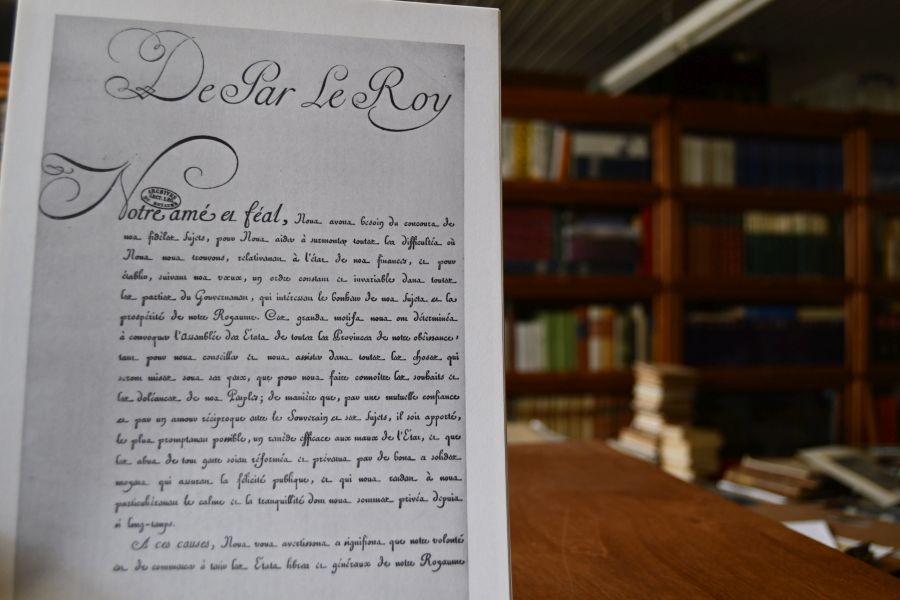 De Par Le Roy
Notre amé et féal, Nous avons besoin du concours de
nos fidèles Sujets, pour Nous aider à surmonter toutes les difficultés où
Nous nous trouvons, relativement à l'état de nos finances, et pour
établir, suivant nos vœux, un ordre constant et invariable dans toutes
les parties du Gouvernement, qui intéressent le bonheur de nos Sujets et la
prospérité de notre Royaume. Ces grands motifs nous ont déterminés
à convoquer l'Assemblée des Etats de toutes les Provinces de notre obéissance,
tant pour nous conseiller et nous assister dans toutes les choses qui
seront mises sous ses yeux, que pour nous faire connoître les souhaits et
les doléances de nos Peuples; de manière que, par une mutuelle confiance
et par un amour réciproque entre le Souverain et ses Sujets, il soit apporté,
le plus promptement possible, un remède efficace aux maux de l'Etat, et que
les abus de tout genre soient réformés et prévenus par de bons et solides
moyens qui assurent la félicité publique, et qui nous rendent à nous
particulièrement le calme et la tranquillité dont nous sommes privés depuis
si long-temps.
A ces causes, Nous vous avertissons et signifions que notre volonté
est de commencer à tenir les Etats libres et généraux de notre Royaume